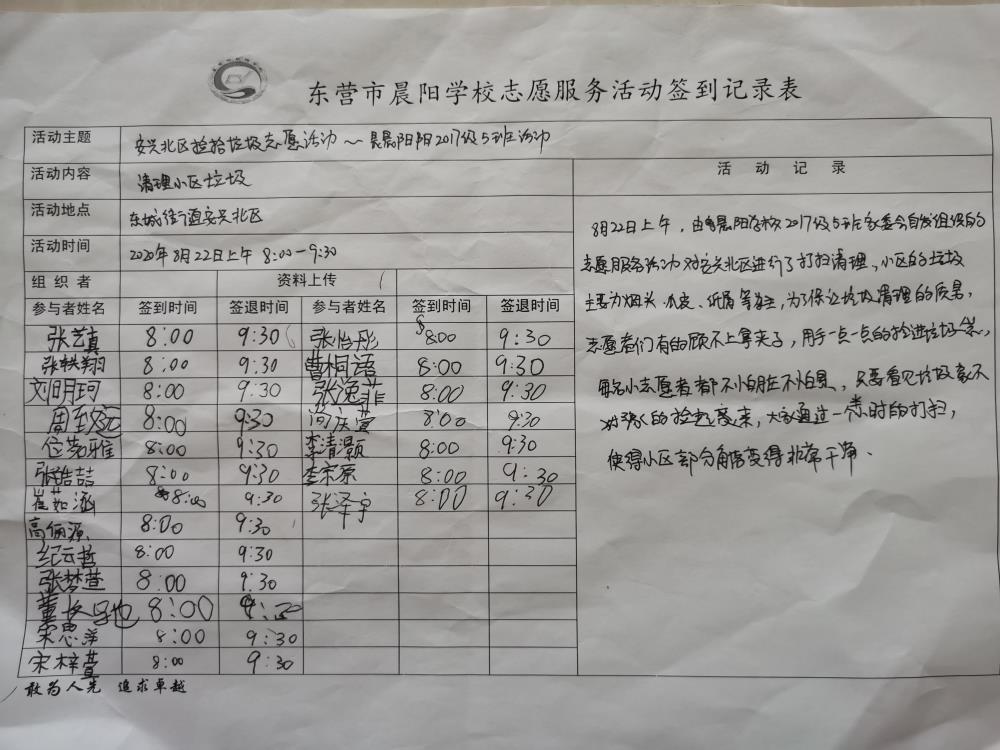 东营市晨阳学校志愿服务活动签到记录表
活动主题 安兴北区捡拾垃圾志愿活动~晨阳2017级5班活动
活动内容 清理小区垃圾
活动记录
活动地点 东城街道安兴北区
活动时间 2020年8月22日上午 8:00-9:30
组织者 资料上传
参与者姓名 签到时间 签退时间 参与者姓名 签到时间 签退时间
张艺真 8:00 9:30 张怡彤 8:00 9:30
张轶翔 8:00 9:30 曹桐语 8:00 9:30
刘明珂 8:00 9:30 张逸菲 8:00 9:30
周 8:00 9:30 尚庆萱 8:00 9:30
位 雅 8:00 9:30 李清颢 8:00 9:30
张皓喆 8:00 9:30 李宗原 8:00 9:30
崔茹涵 8:00 9:30 张泽宇 8:00 9:30
高俪源 8:00 9:30
纪云哲 8:00 9:30
张梦萱 8:00 9:30
董 8:00 9:30
宋思洋 8:00 9:30
宋梓萱 8:00 9:30
8月22日上午,由晨阳学校2017级5班家委会自发组织的
志愿服务活动对安兴北区进行了打扫清理,小区的垃圾
主要为烟头、瓜皮、纸屑等为主,为了保证垃圾清理的质量,
志愿者们有的顾不上拿夹子,用手一点一点的捡进垃圾袋,
每名小志愿者都不怕脏不怕累,只要看见垃圾毫不
犹豫的捡起来,大家通过一小时的打扫,
使得小区部分角落变得非常干净。
敢为人先 追求卓越